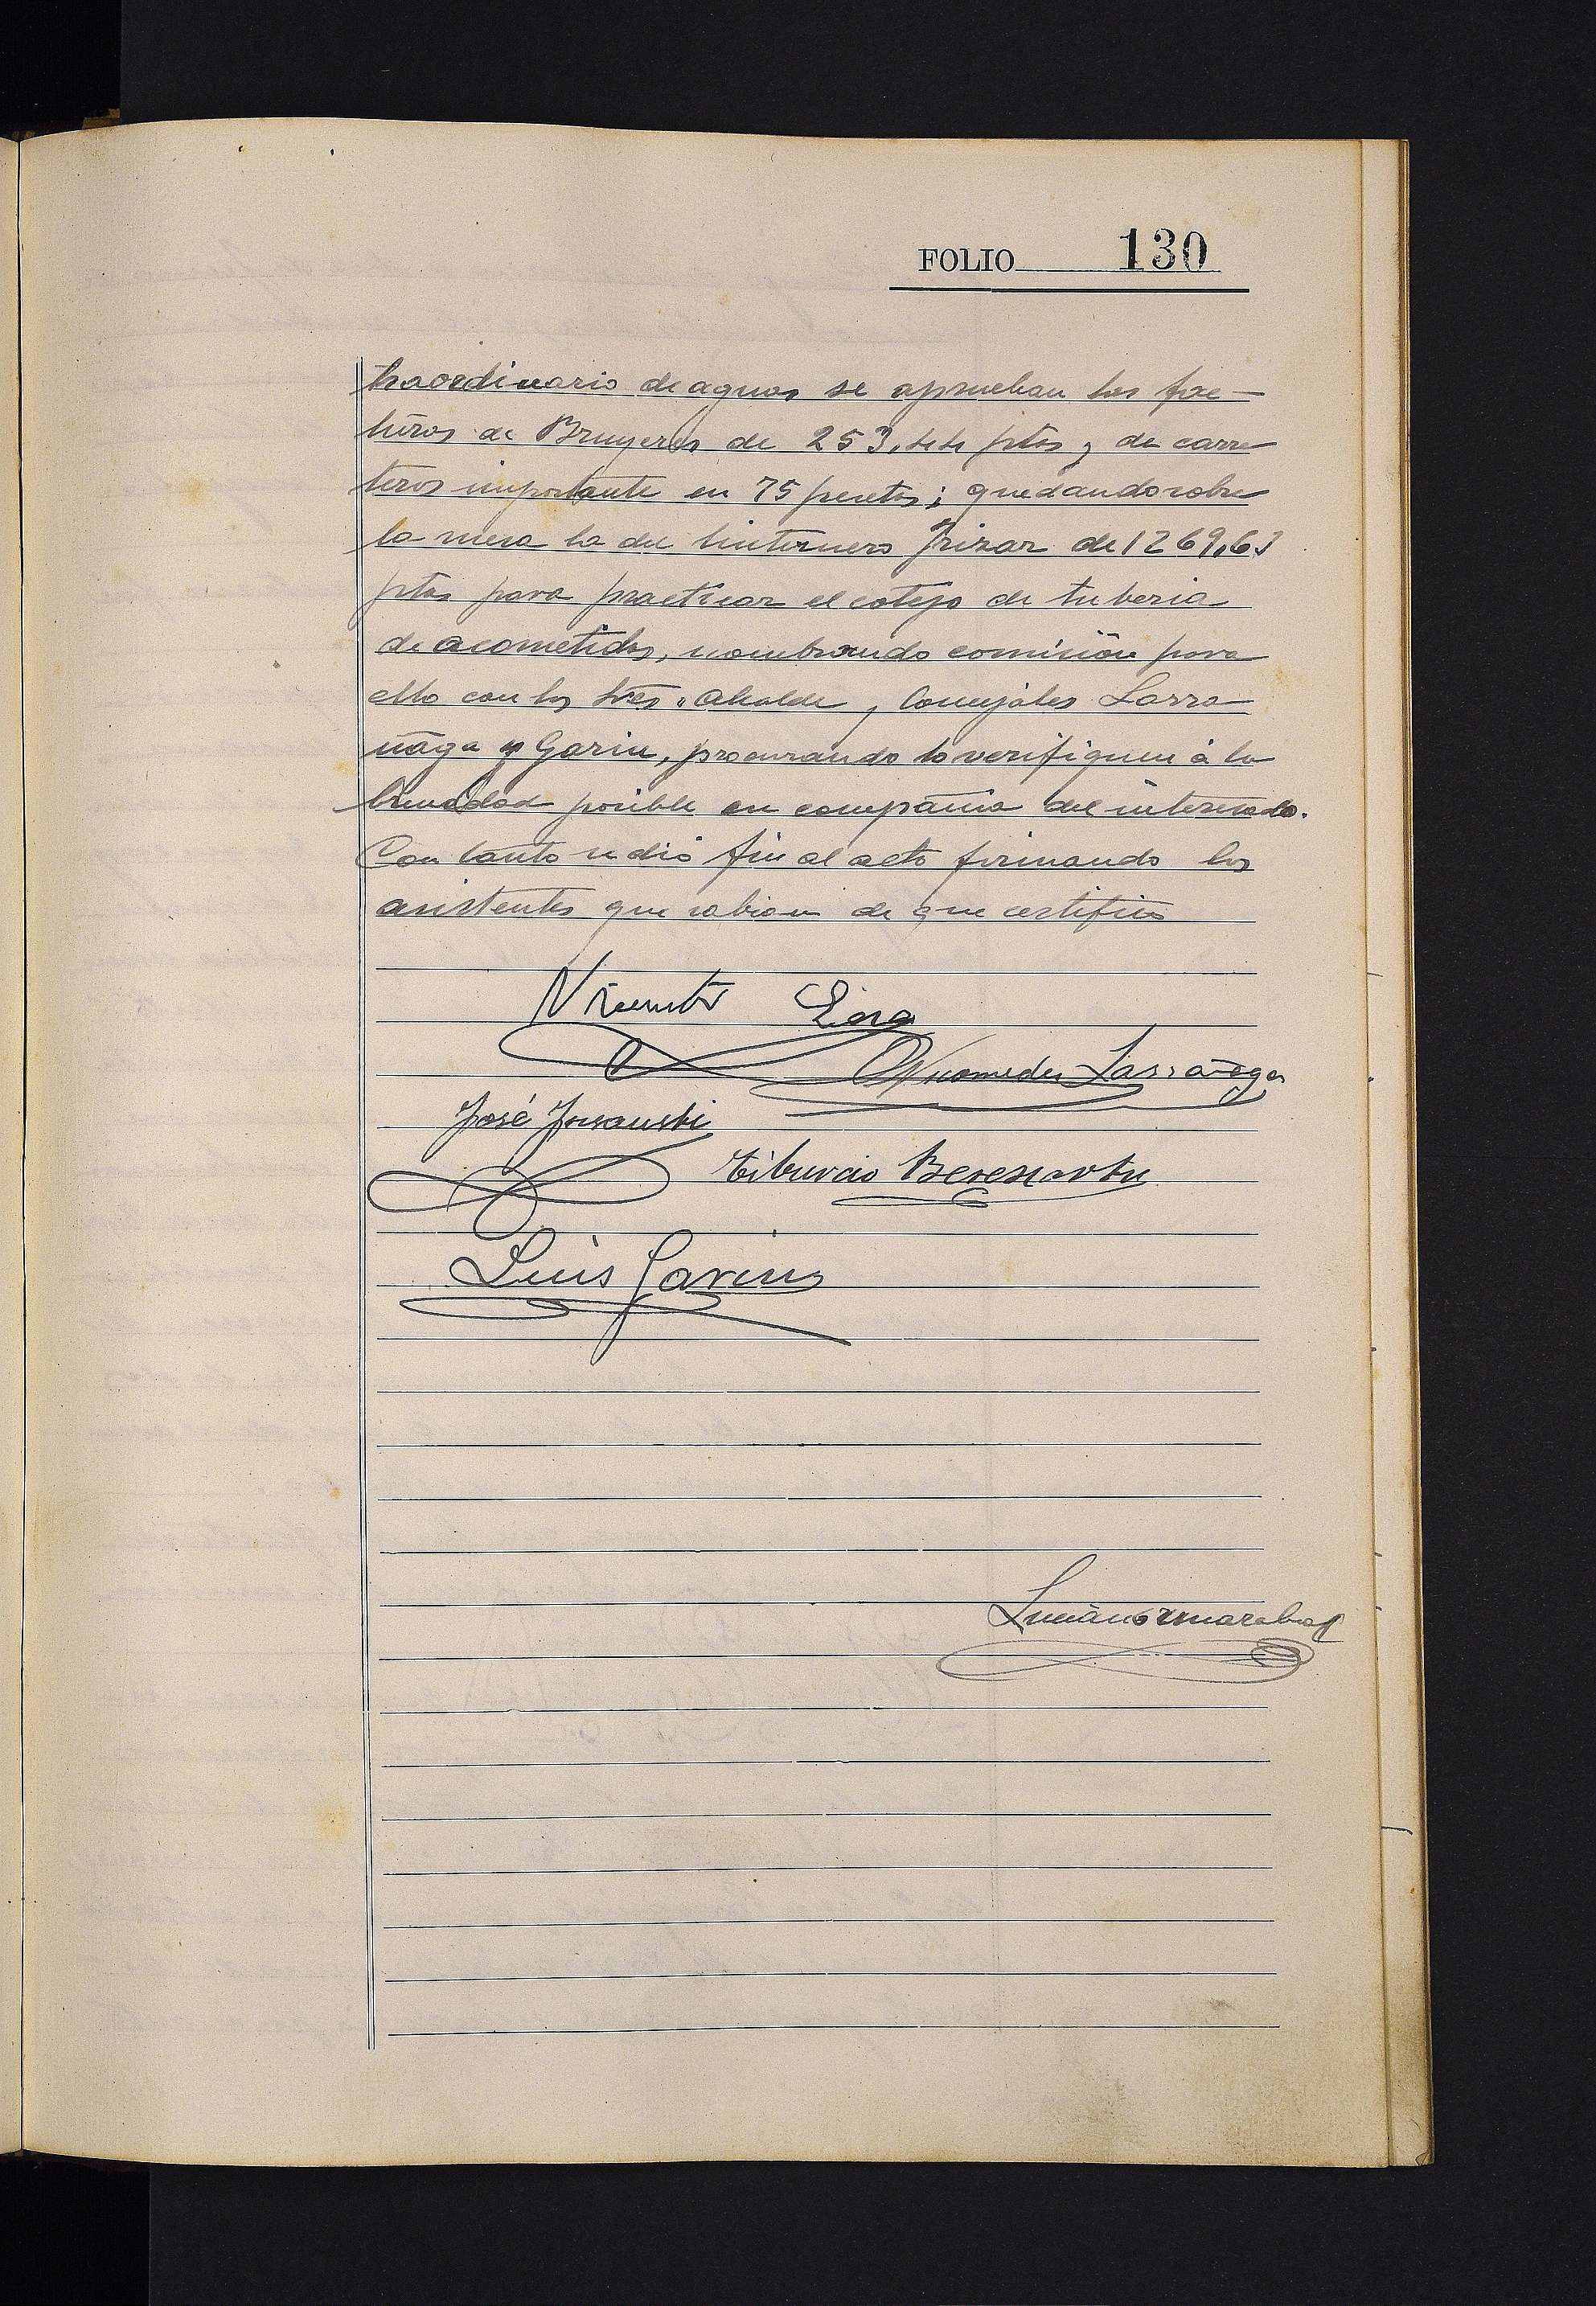 FOLIO 130
traordinario de aguas se aprueban las fac-
turas de Bruyeres de 253,44 ptas y de carre
teros importante en 75 pesetas; quedando sobre
la mesa la del linternero Irizar de 1269,63
ptas para practicar el cotejo de tuberia
de acometidas, nombrando comisión para
ello con los sres. Alcalde, Concejales Larra
ñaga y Garin, procurando lo verifiquen á la
brevedad posible en compañia del interesado.
Con tanto se dió fin al acto firmando los
asistentes que sabian de que certifico
Vicente Lasa
Nicomedes Larrañaga
José
Tiburcio Beresiartu
Luis Garin
Luciano